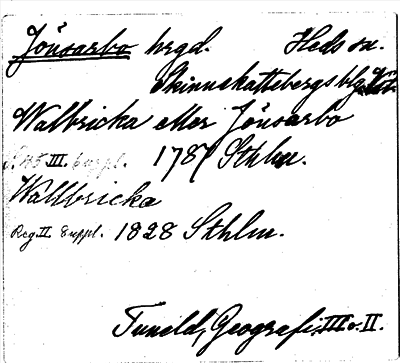 Jönsarbo hrgd. Heds sn.
Skinnskattebergs blg. Vstm.
Walbricka eller Jönsarbo
s. 145 III. Suppl. 1787 Sthlm.
Wallbricka
Reg. II Suppl. 1828 Sthlm.
Tuneld, Geografi III o. II.